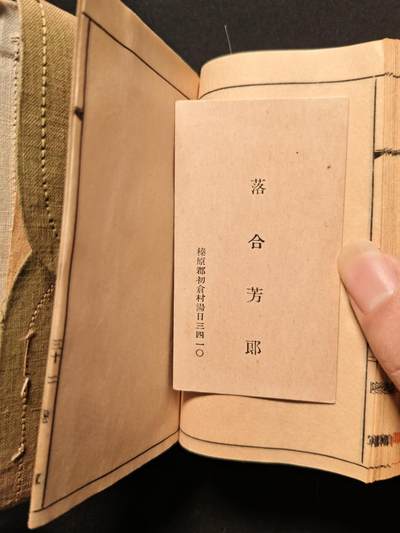 落合芳郎
榛原郡初倉村湯日三四一〇
三十二